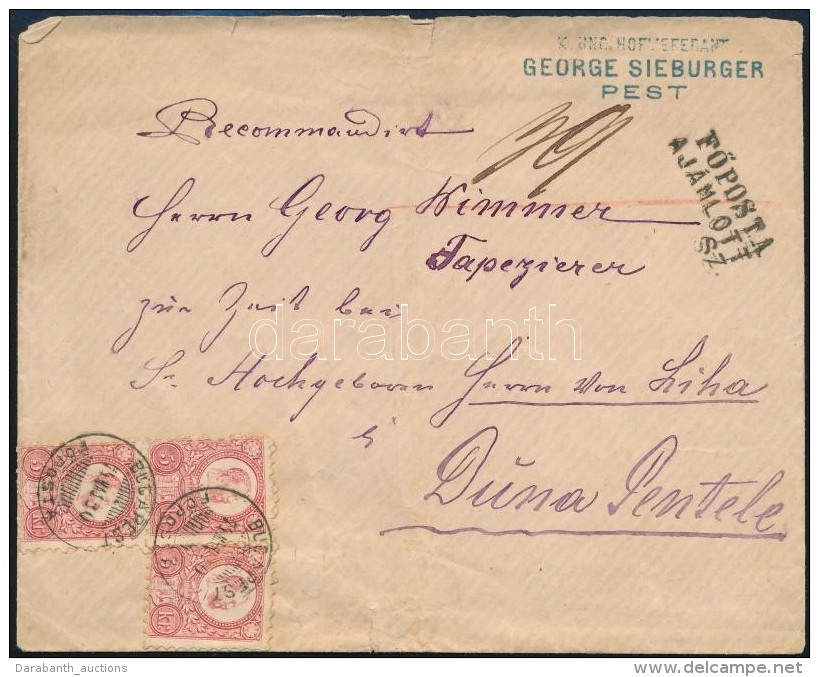 K. UNG. HOFLIEFERANT
GEORGE SIEBURGER
PEST
Recommandirt
FŐPOSTA
AJÁMLOTT
SZ.
Herrn Georg Wimmer
Tapezierer
zur Zeit bei
Sr Hochgeboren Herrn von Liha
Duna Pentele
BUDAPEST
FŐPOSTA
BUDAPEST
5 KR
darabanth
Darabanth_auctions
http://www.delcampe.net